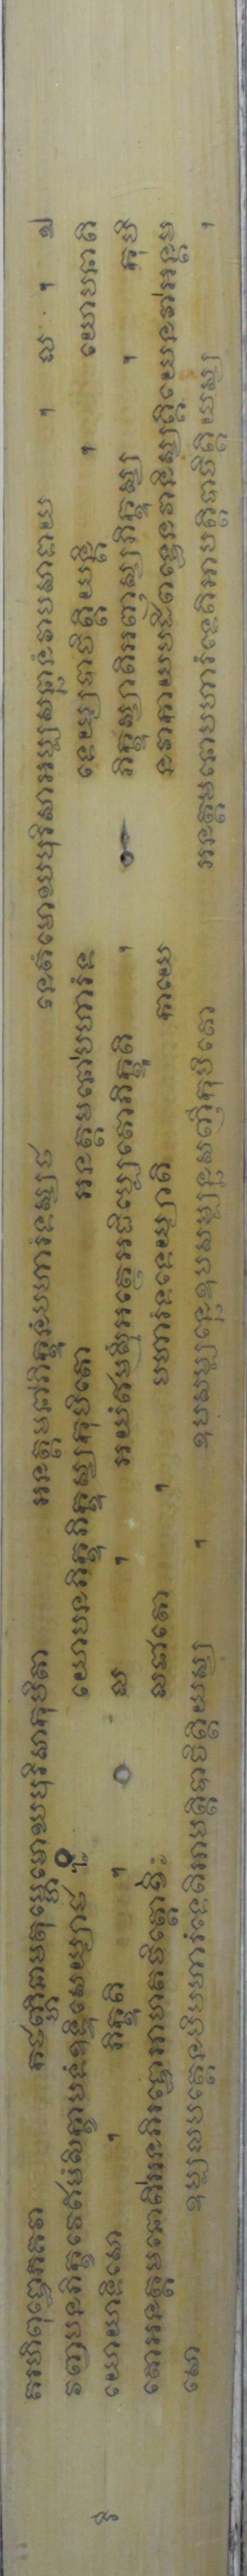 តរហិពុទ្ធោភគវា កថញ្ហិនាមតុម្ហេមោឃបុរិសាកុបិតា អនត្តមនាភិក្ខូនំបហារំទស្សថ នេតំមោឃបុរិសាអប្បសន្នានំវាបសាទាយ ។ ល ។ ឯ
វញ្ចបនភិក្ខវេឥមំសិក្ខាបទំឧទ្ទិសេយ្យាថ ៖ យោបនភិក្ខុភិក្ខុស្សកុបិតោ អនត្តមនោបហារំទ ទេយ្យបាចិត្តិយន្តិ ។ យោបនាតិ
យោយាទិសោ ។ ភិក្ខូតិ ។ ល ។ អយំឥមស្មឹអត្ថេអធិប្បេតោភិក្ខូតិ ។ ភិក្ខុស្សាតិអញ្ញស្សភិក្ខុស្ស ។ កុបិ
តោអនត្តមនោតិអនភិរទ្ធោអាហតចិត្តោខិ៖ លជាតោ ។ បហារំទទេយ្យាតិ កាយេ នវាកាយបដិពទ្ធេនវានិស្សគ្គិយេនវាអន្តម
សោ ឧប្បលបត្តេនបិបហារំទេតិអាបត្តិបាចិត្តិយស្ស ។ ឧបសម្បន្នេឧបសម្បន្នសញ្ញីកុបិតោ អនត្តមនោបហារំទេតិអាបត្តិបាចិត្តិយស្ស ។